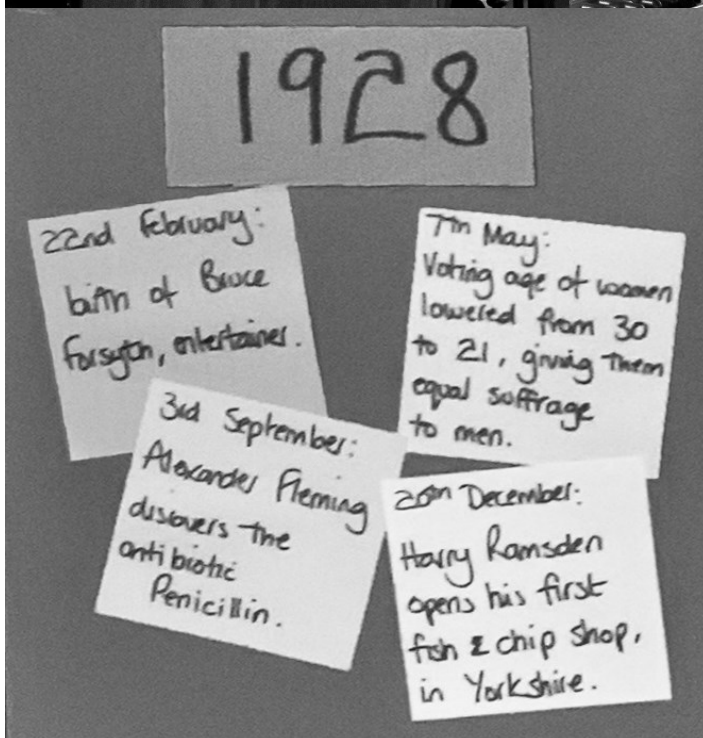 1928
22nd February:
birth of Bruce
Forsyth, entertainer.
7th May:
Voting age of women
lowered from 30
to 21, giving them
equal suffrage
to men.
3rd September:
Alexander Fleming
discovers the
antibiotic
Penicillin.
20th December:
Harry Ramsden
opens his first
fish & chip shop,
in Yorkshire.